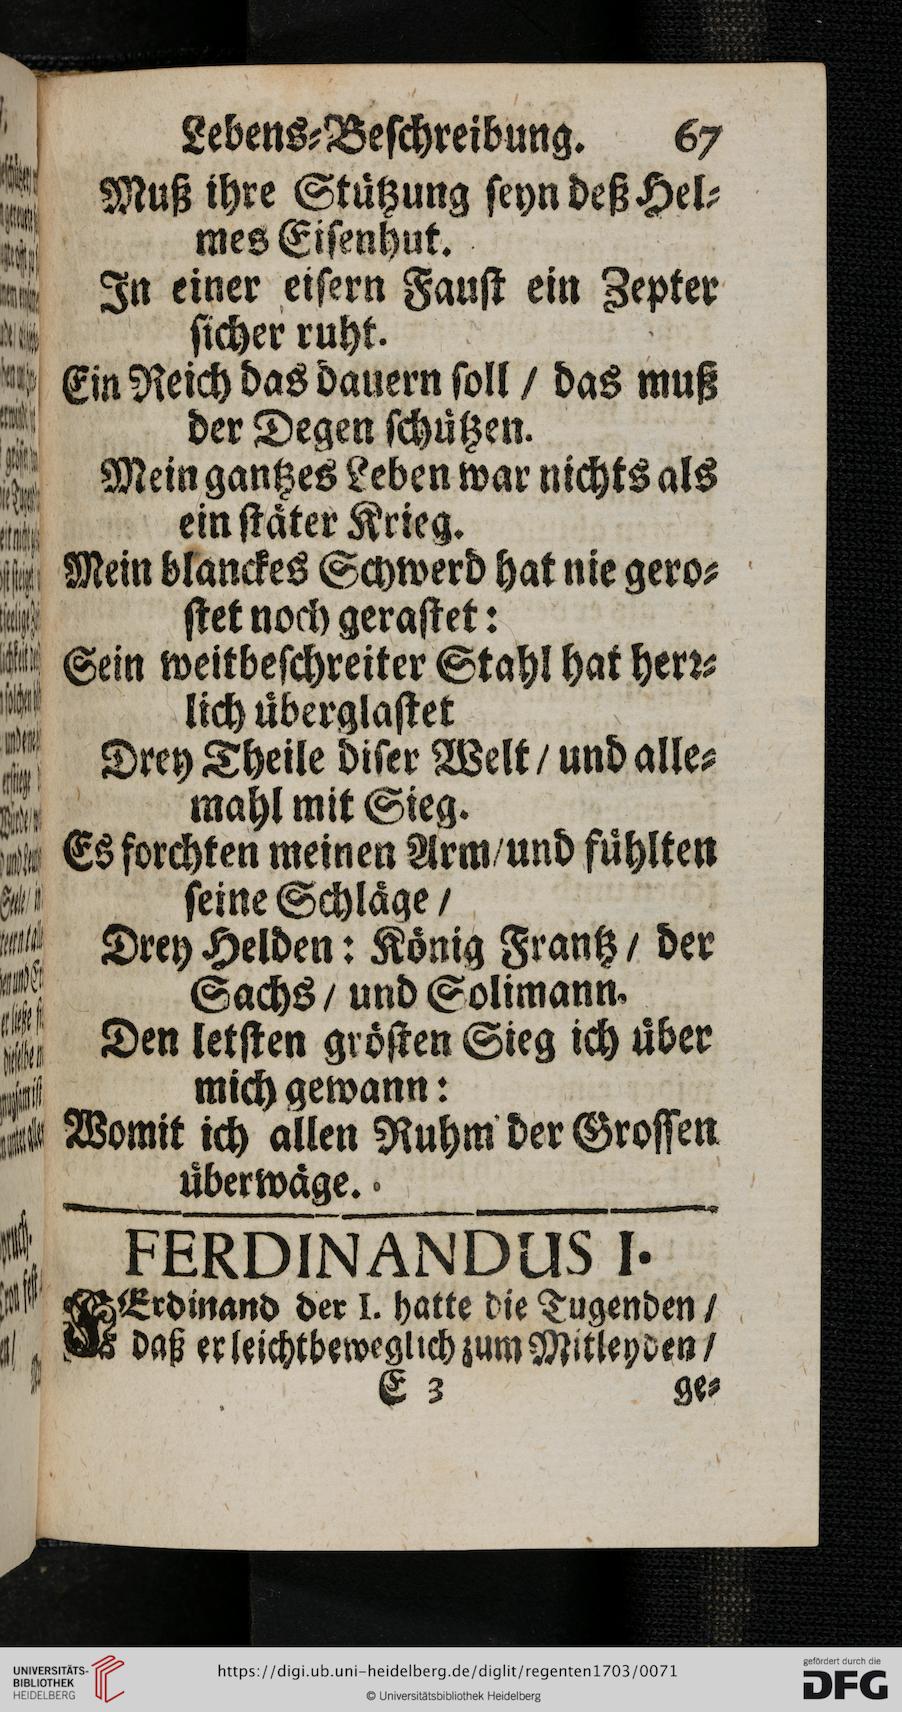 Lebens-Beschreibung. 67
Muß ihre Stützung seyn deß Hel-
mes Eisenhut.
In einer eisern Faust ein Zepter
sicher ruht.
Ein Reich das dauern soll / das muß
der Degen schützen.
Mein gantzes Leben war nichts als
ein stäter Krieg.
Mein blanckes Schwerd hat nie gero-
stet noch gerastet:
Sein weitbeschreiter Stahl hat herr-
lich überglastet
Drey Theile diser Welt / und alle-
mahl mit Sieg.
Es forchten meinen Arm / und fühlten
seine Schläge /
Drey Helden: König Frantz / der
Sachs / und Solimann.
Den letsten grösten Sieg ich über
mich gewann:
Womit ich allen Ruhm der Grossen
überwäge.
FERDINANDUS I.
FErdinand der I. hatte die Tugenden /
daß er leichtbeweglich zum Mitleyden /
E 3 ge-
UNIVERSITÄTS-
BIBLIOTHEK
HEIDELBERG
https://digi.ub.uni-heidelberg.de/diglit/regenten1703/0071
© Universitätsbibliothek Heidelberg
gefördert durch die
DFG